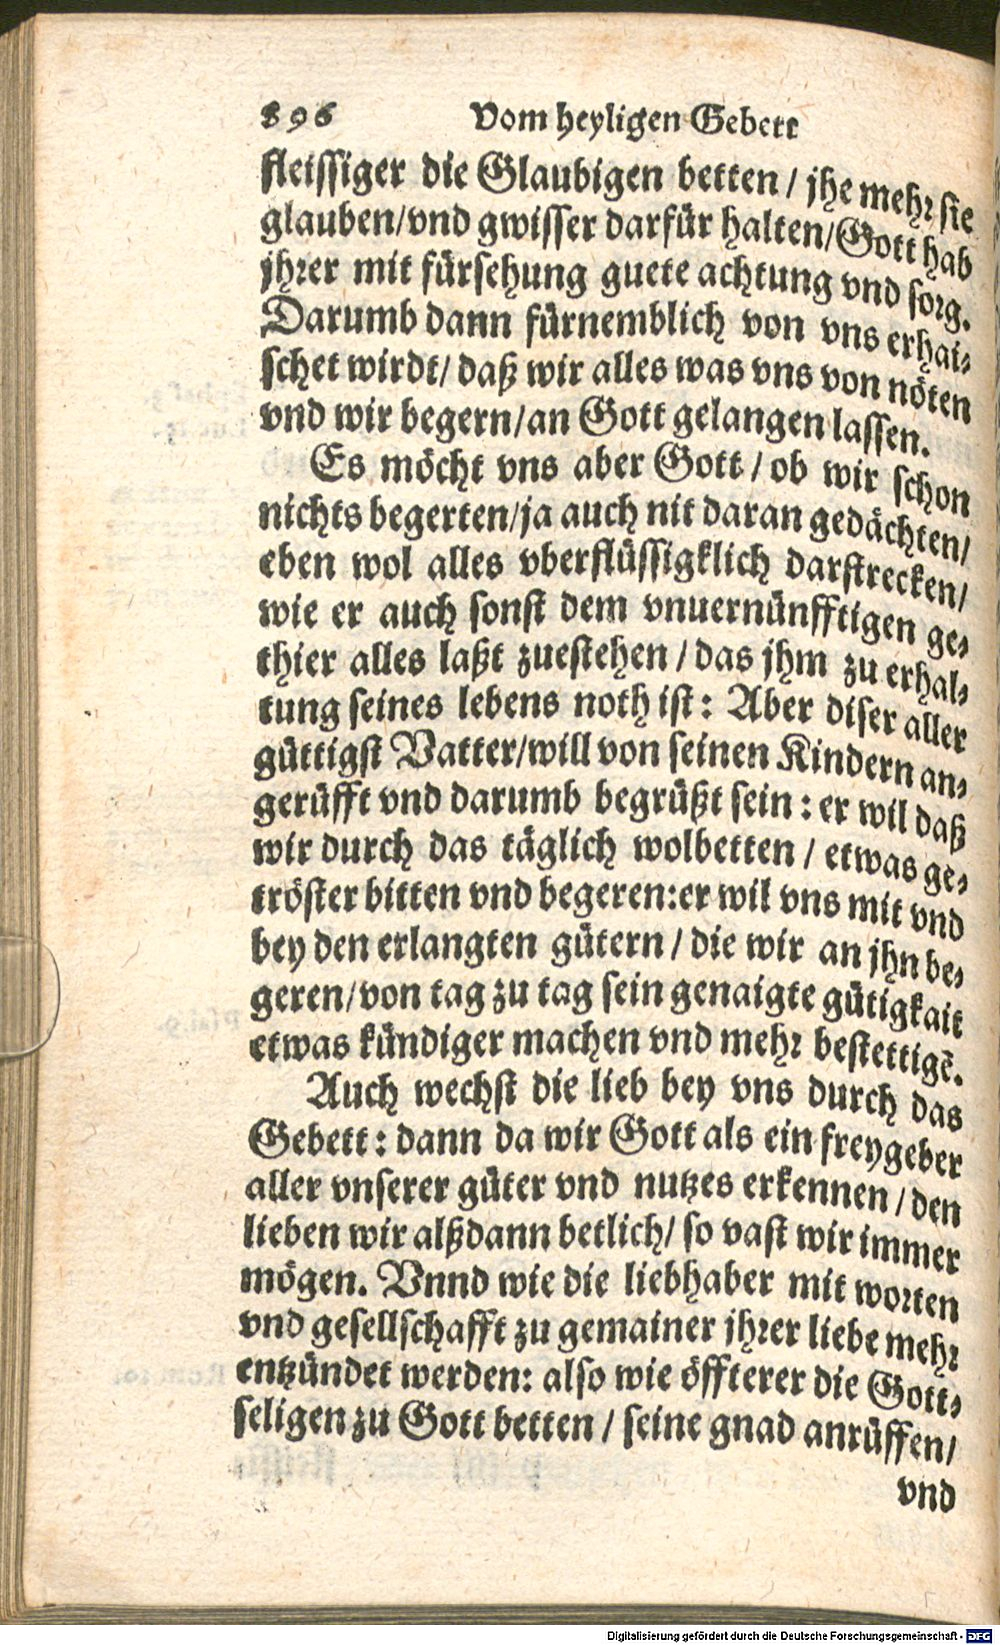 896 Vom heyligen Gebett
fleissiger die Glaubigen betten / jhe mehr sie
glauben/vnd gwisser darfür halten/Gott hab
jhrer mit fürsehung guete achtung vnd sorg.
Darumb dann fürnemblich von vns erhai-
schet wirdt/ daß wir alles was vns von nöten
vnd wir begern/an Gott gelangen lassen.
Es möcht vns aber Gott / ob wir schon
nichts begerten/ja auch nit daran gedächten/
eben wol alles vberflüssigklich darstrecken/
wie er auch sonst dem vnuernünfftigen ge-
thier alles laßt zuestehen / das jhm zu erhal-
tung seines lebens noth ist: Aber diser aller
güttigst Vatter/will von seinen Kindern an-
gerüfft vnd darumb begrüßt sein : er wil daß
wir durch das täglich wolbetten / etwas ge-
tröster bitten vnd begeren:er wil vns mit vnd
bey den erlangten gütern / die wir an jhn be-
geren/von tag zu tag sein genaigte gütigkait
etwas kündiger machen vnd mehr bestettigē.
Auch wechst die lieb bey vns durch das
Gebett: dann da wir Gott als ein freygeber
aller vnserer güter vnd nutzes erkennen / den
lieben wir alßdann betlich/ so vast wir immer
mögen. Vnnd wie die liebhaber mit worten
vnd gesellschafft zu gemainer jhrer liebe mehr
entzündet werden: also wie öffterer die Gott-
seligen zu Gott betten / seine gnad anrüffen/
vnd
Digitalisierung gefördert durch die Deutsche Forschungsgemeinschaft - DFG